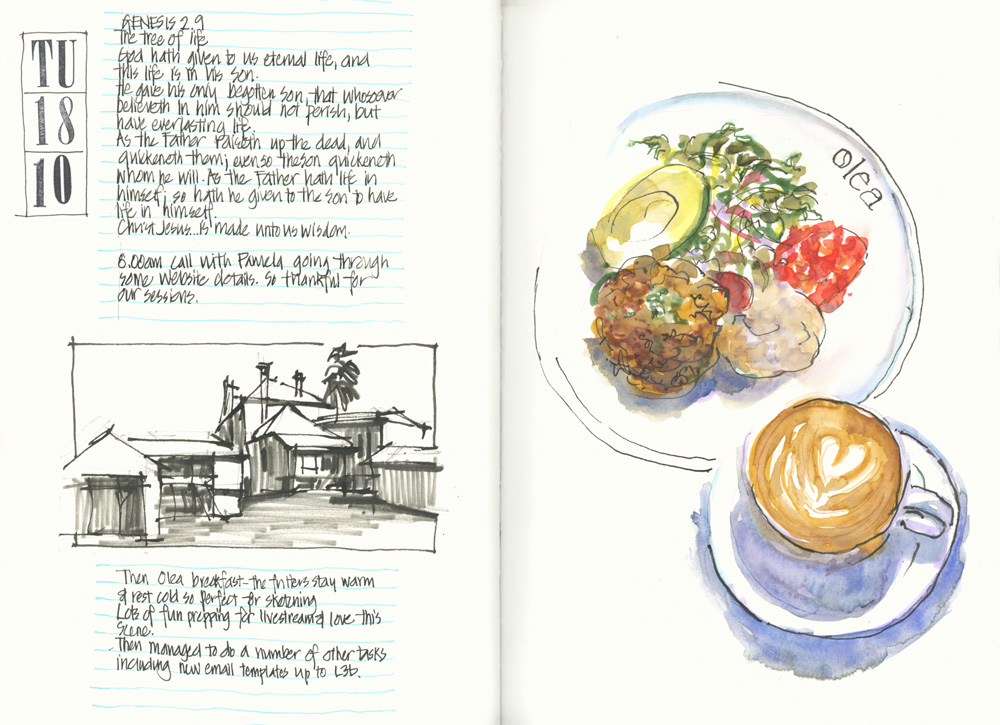 TU
18
10
GENESIS 2.9
The tree of life
God hath given to us eternal life, and
this life is in his son.
He gave his only begotten son, that whosoever
believeth in him should not perish, but
have everlasting life.
As the Father raiseth up the dead, and
quickeneth them; even so the son quickeneth
whom he will. As the Father hath life in
himself; so hath he given to the son to have
life in himself.
Christ Jesus...is made unto us wisdom.
8.00am call with Pamela going through
some website details. So thankful for
our sessions.
Then Olea breakfast - the fritters stay warm
& rest cold so perfect for sketching
Lots of fun prepping for livestream & love this
scene.
Then managed to do a number of other tasks
including new email templates up to L3b.
olea